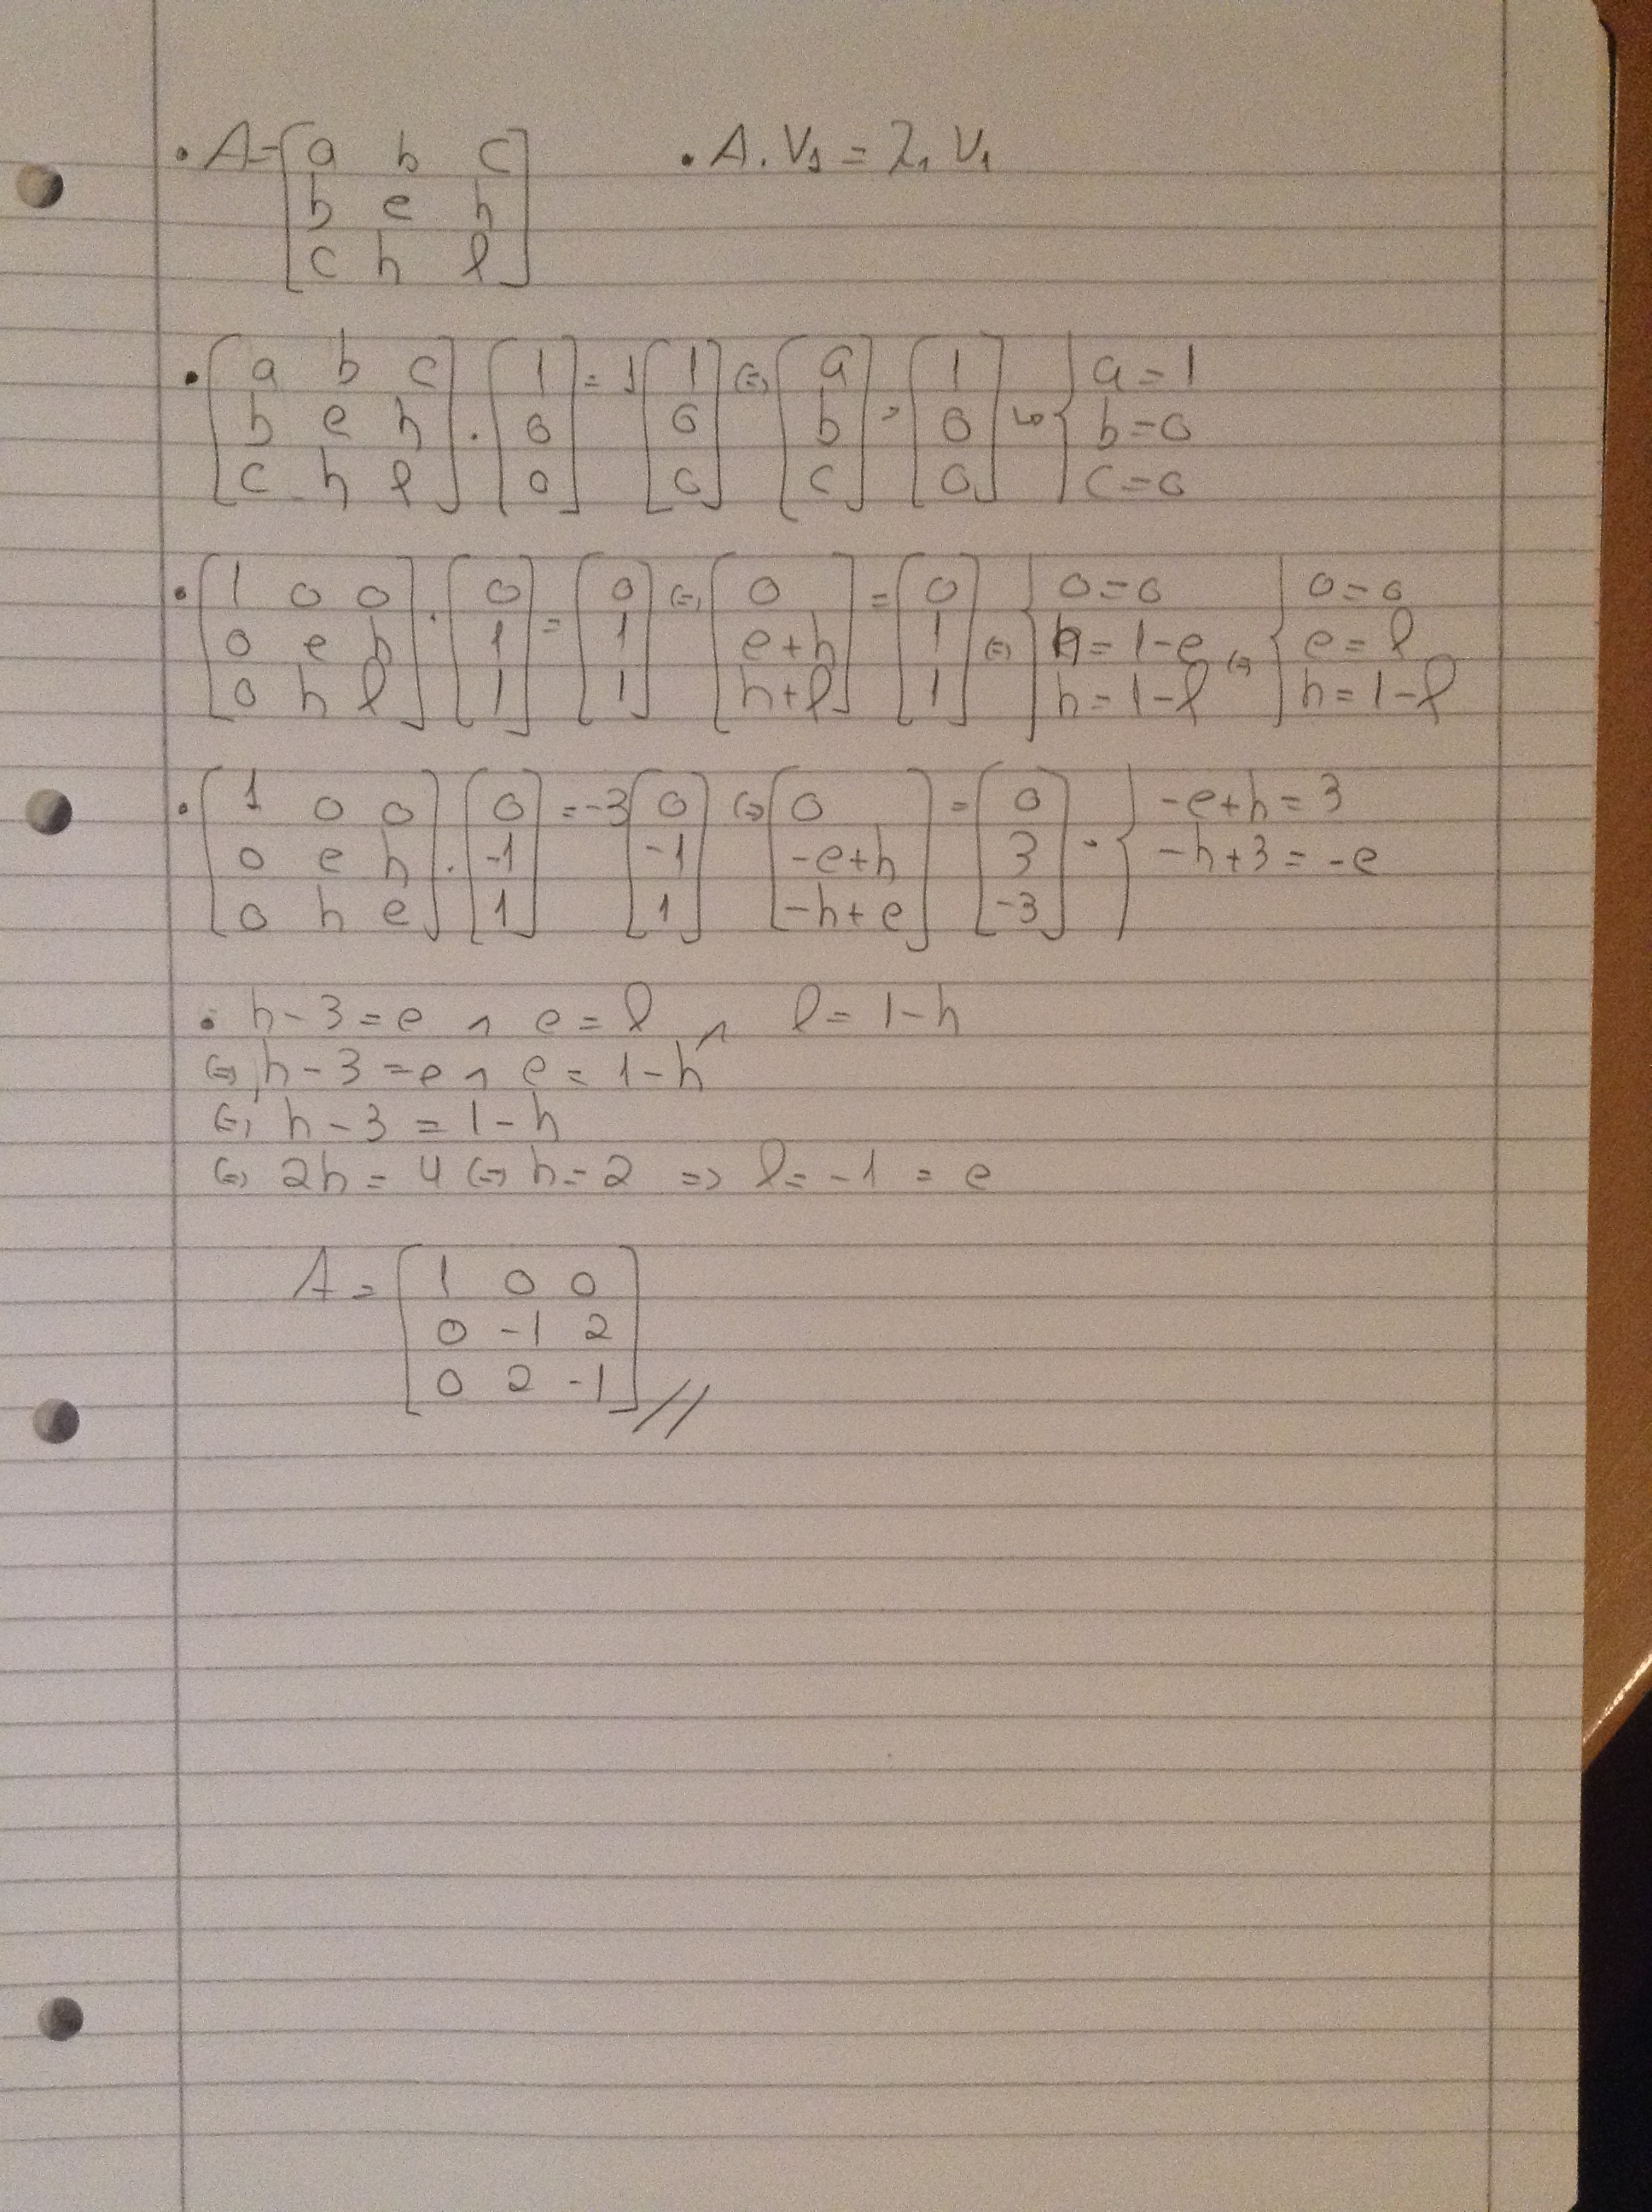 • A = [a b c; b e h; c h l] • A . V₁ = λ₁ V₁
• [a b c; b e h; c h l] . [1; 0; 0] = 1 [1; 0; 0] (=) [a; b; c] = [1; 0; 0] { a = 1; b = 0; c = 0
• [1 0 0; 0 e h; 0 h l] . [0; 1; 1] = [0; 1; 1] (=) [0; e+h; h+l] = [0; 1; 1] (=) { 0 = 0; h = 1-e; h = 1-l (=) { 0 = 0; e = l; h = 1-l
• [1 0 0; 0 e h; 0 h e] . [0; -1; 1] = -3 [0; -1; 1] (=) [0; -e+h; -h+e] = [0; 3; -3] { -e+h = 3; -h+3 = -e
• h-3 = e ∧ e = l ∧ l = 1-h
(=) h-3 = e ∧ e = 1-h
(=) h-3 = 1-h
(=) 2h = 4 (=) h = 2 => l = -1 = e
A = [1 0 0; 0 -1 2; 0 2 -1] //